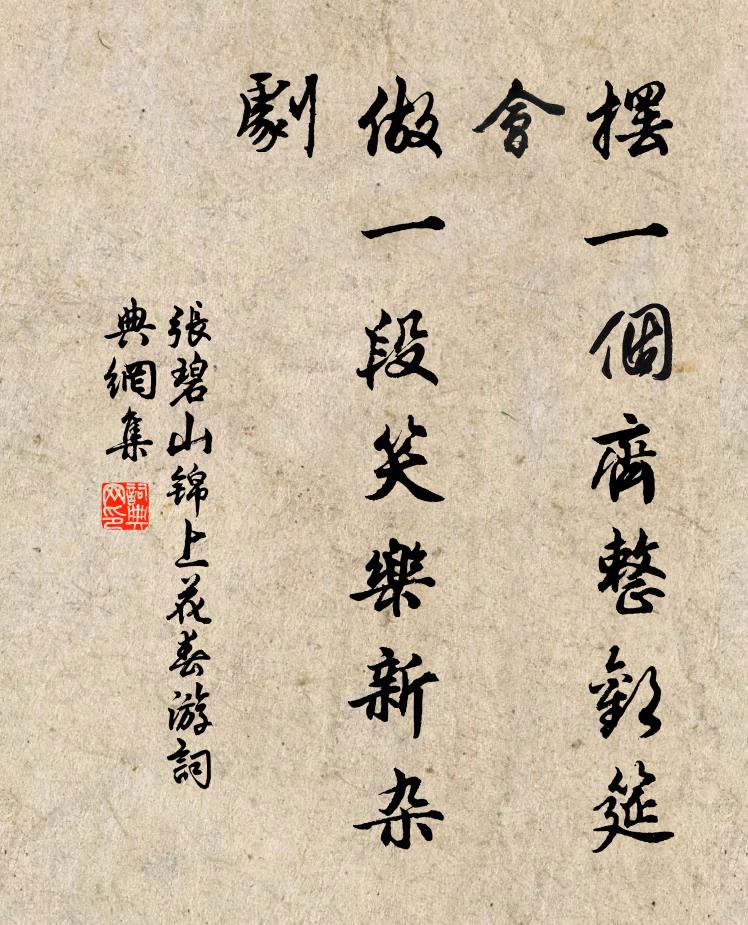 擺一個齊整歡筵
會
做一段笑樂新杂
劇
張碧山锦上花春游詞
典網集
詞典
网印